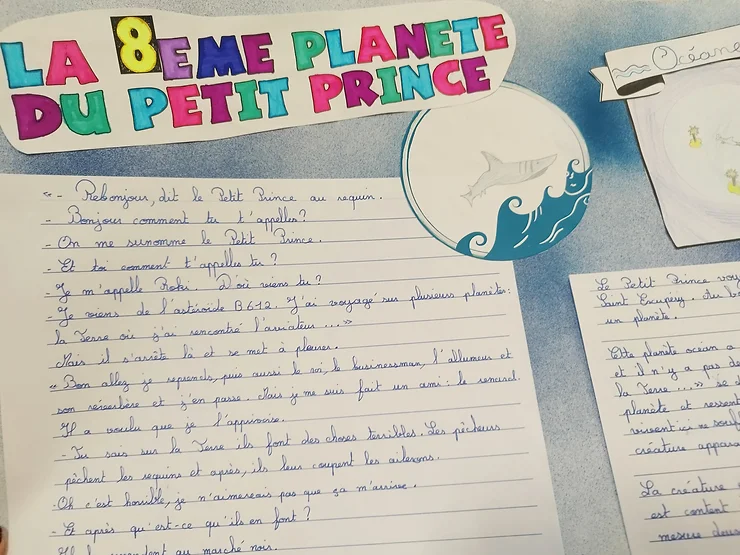 LA 8EME PLANETE
DU PETIT PRINCE
Océane
« - Rebonjour, dit le Petit Prince au requin.
- Bonjour comment tu t'appelles ?
- On me surnomme le Petit Prince.
- Et toi comment t'appelles tu ?
- Je m'appelle Roki. D'où viens tu ?
- Je viens de l'astéroïde B612. J'ai voyagé sur plusieurs planètes :
la Terre où j'ai rencontré l'aviateur ... »
Mais il s'arrête là et se met à pleurer.
« Bon allez je reprends, puis aussi le roi, le businessman, l'allumeur et
son réverbère et j'en passe. Mais je me suis fait un ami : le renard.
Il a voulu que je l'apprivoise.
- Tu sais sur la Terre ils font des choses terribles. Les pêcheurs
pêchent les requins et après, ils leur coupent les ailerons.
- Oh c'est horrible, je n'aimerais pas que ça m'arrive.
- Et après qu'est-ce qu'ils en font ?
au marché noir.
Le Petit Prince
Saint Exupéry. Au
un planète.
planète océan a
et il n'y a pas de
la Terre ... »
planète et
vivent ici ne
créature
La créature
est content
mesure deux